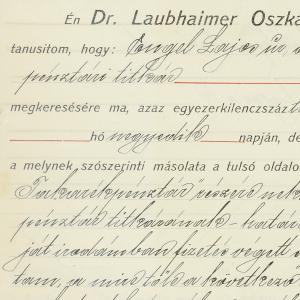 Én Dr. Laubhaimer Oszká
tanusitom, hogy: Engel Lajos úr, a
pénztári titkár
megkeresésére ma, azaz egyezerkilenczszázt
hó negyedik napján, de
a melynek szószerinti másolata a tulsó oldalo
Takarékpénztár részére
pénztár titkárának - határ
ját irodámban fizetés végett
tam, a mire tőle a következő